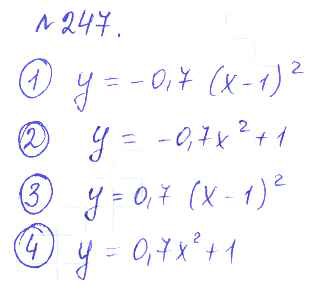 № 247.
① y = -0,7 (x-1)²
② y = -0,7x² + 1
③ y = 0,7 (x-1)²
④ y = 0,7x² + 1